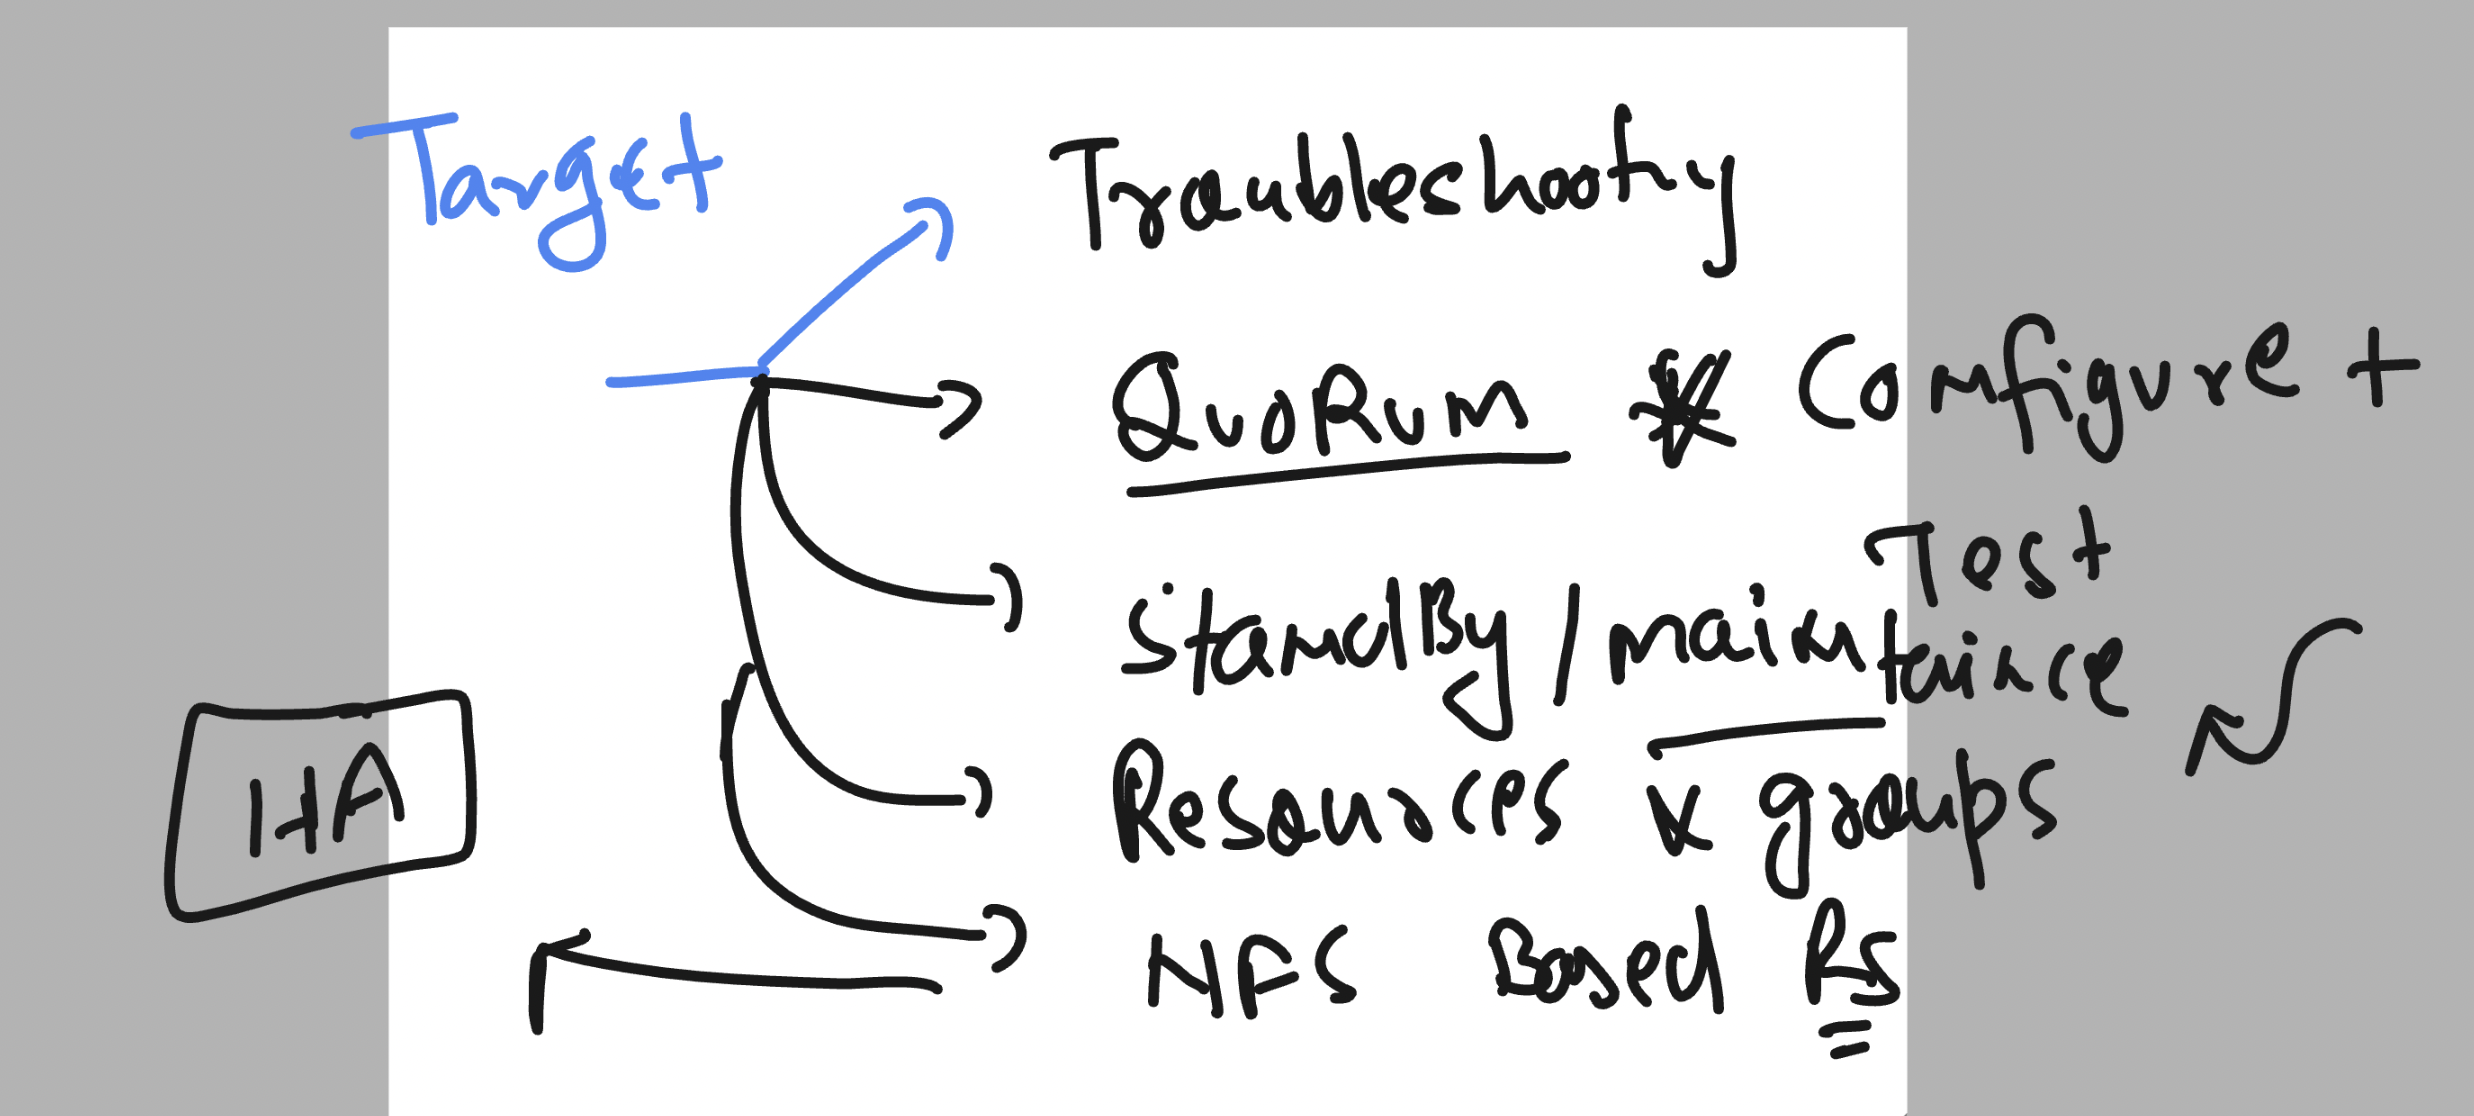 Target
Troubleshooting
QuoRum * Configure +
Test
StandBy / maintaince
Resources & groups
HA
NFS Based Rs